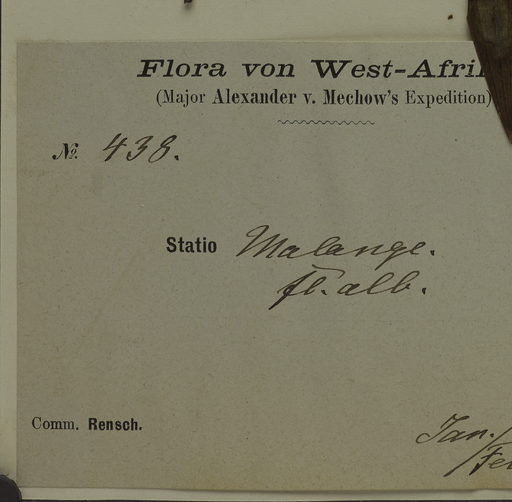 Flora von West-Afri
(Major Alexander v. Mechow's Expedition)
№. 438.
Statio Malange.
fl. alb.
Comm. Rensch. Jan./
Fe